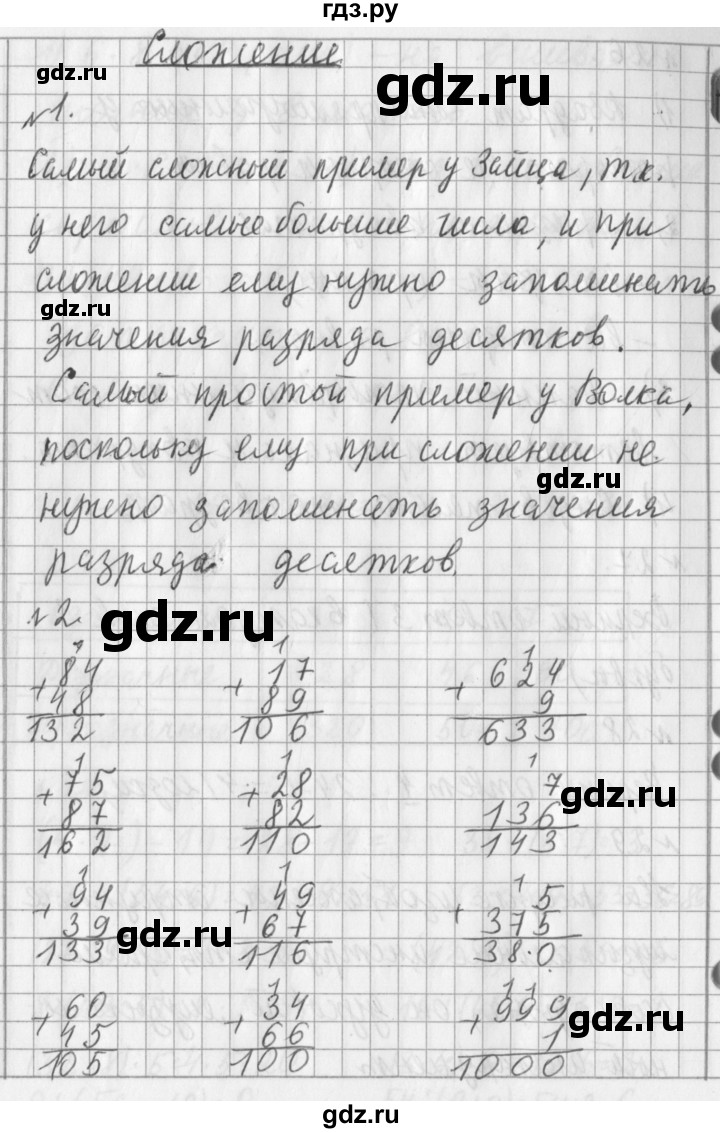 гдз.ру
Сложение
gdz.ru
gdz.ru
№1.
Самый сложный пример у Зайца, т.к.
у него самые большие числа, и при
сложении ему нужно запоминать
gdz.ru
значения разряда десятков.
Самый простой пример у Волка,
поскольку ему при сложении не
gdz.ru
нужно запоминать значения
разряда десятков.
№2.
gdz.ru
1 1 1
+84 +17 +624
48 89 9
132 106 633
1 1 1
+75 +28 7
gdz.ru
87 82 136
162 110 143
1 1 1
+94 +49 +5
39 67 375
gdz.ru
133 116 380
1 11
+60 +34 +999
gdz.ru
45 66 1
105 100 1000
gdz.ru